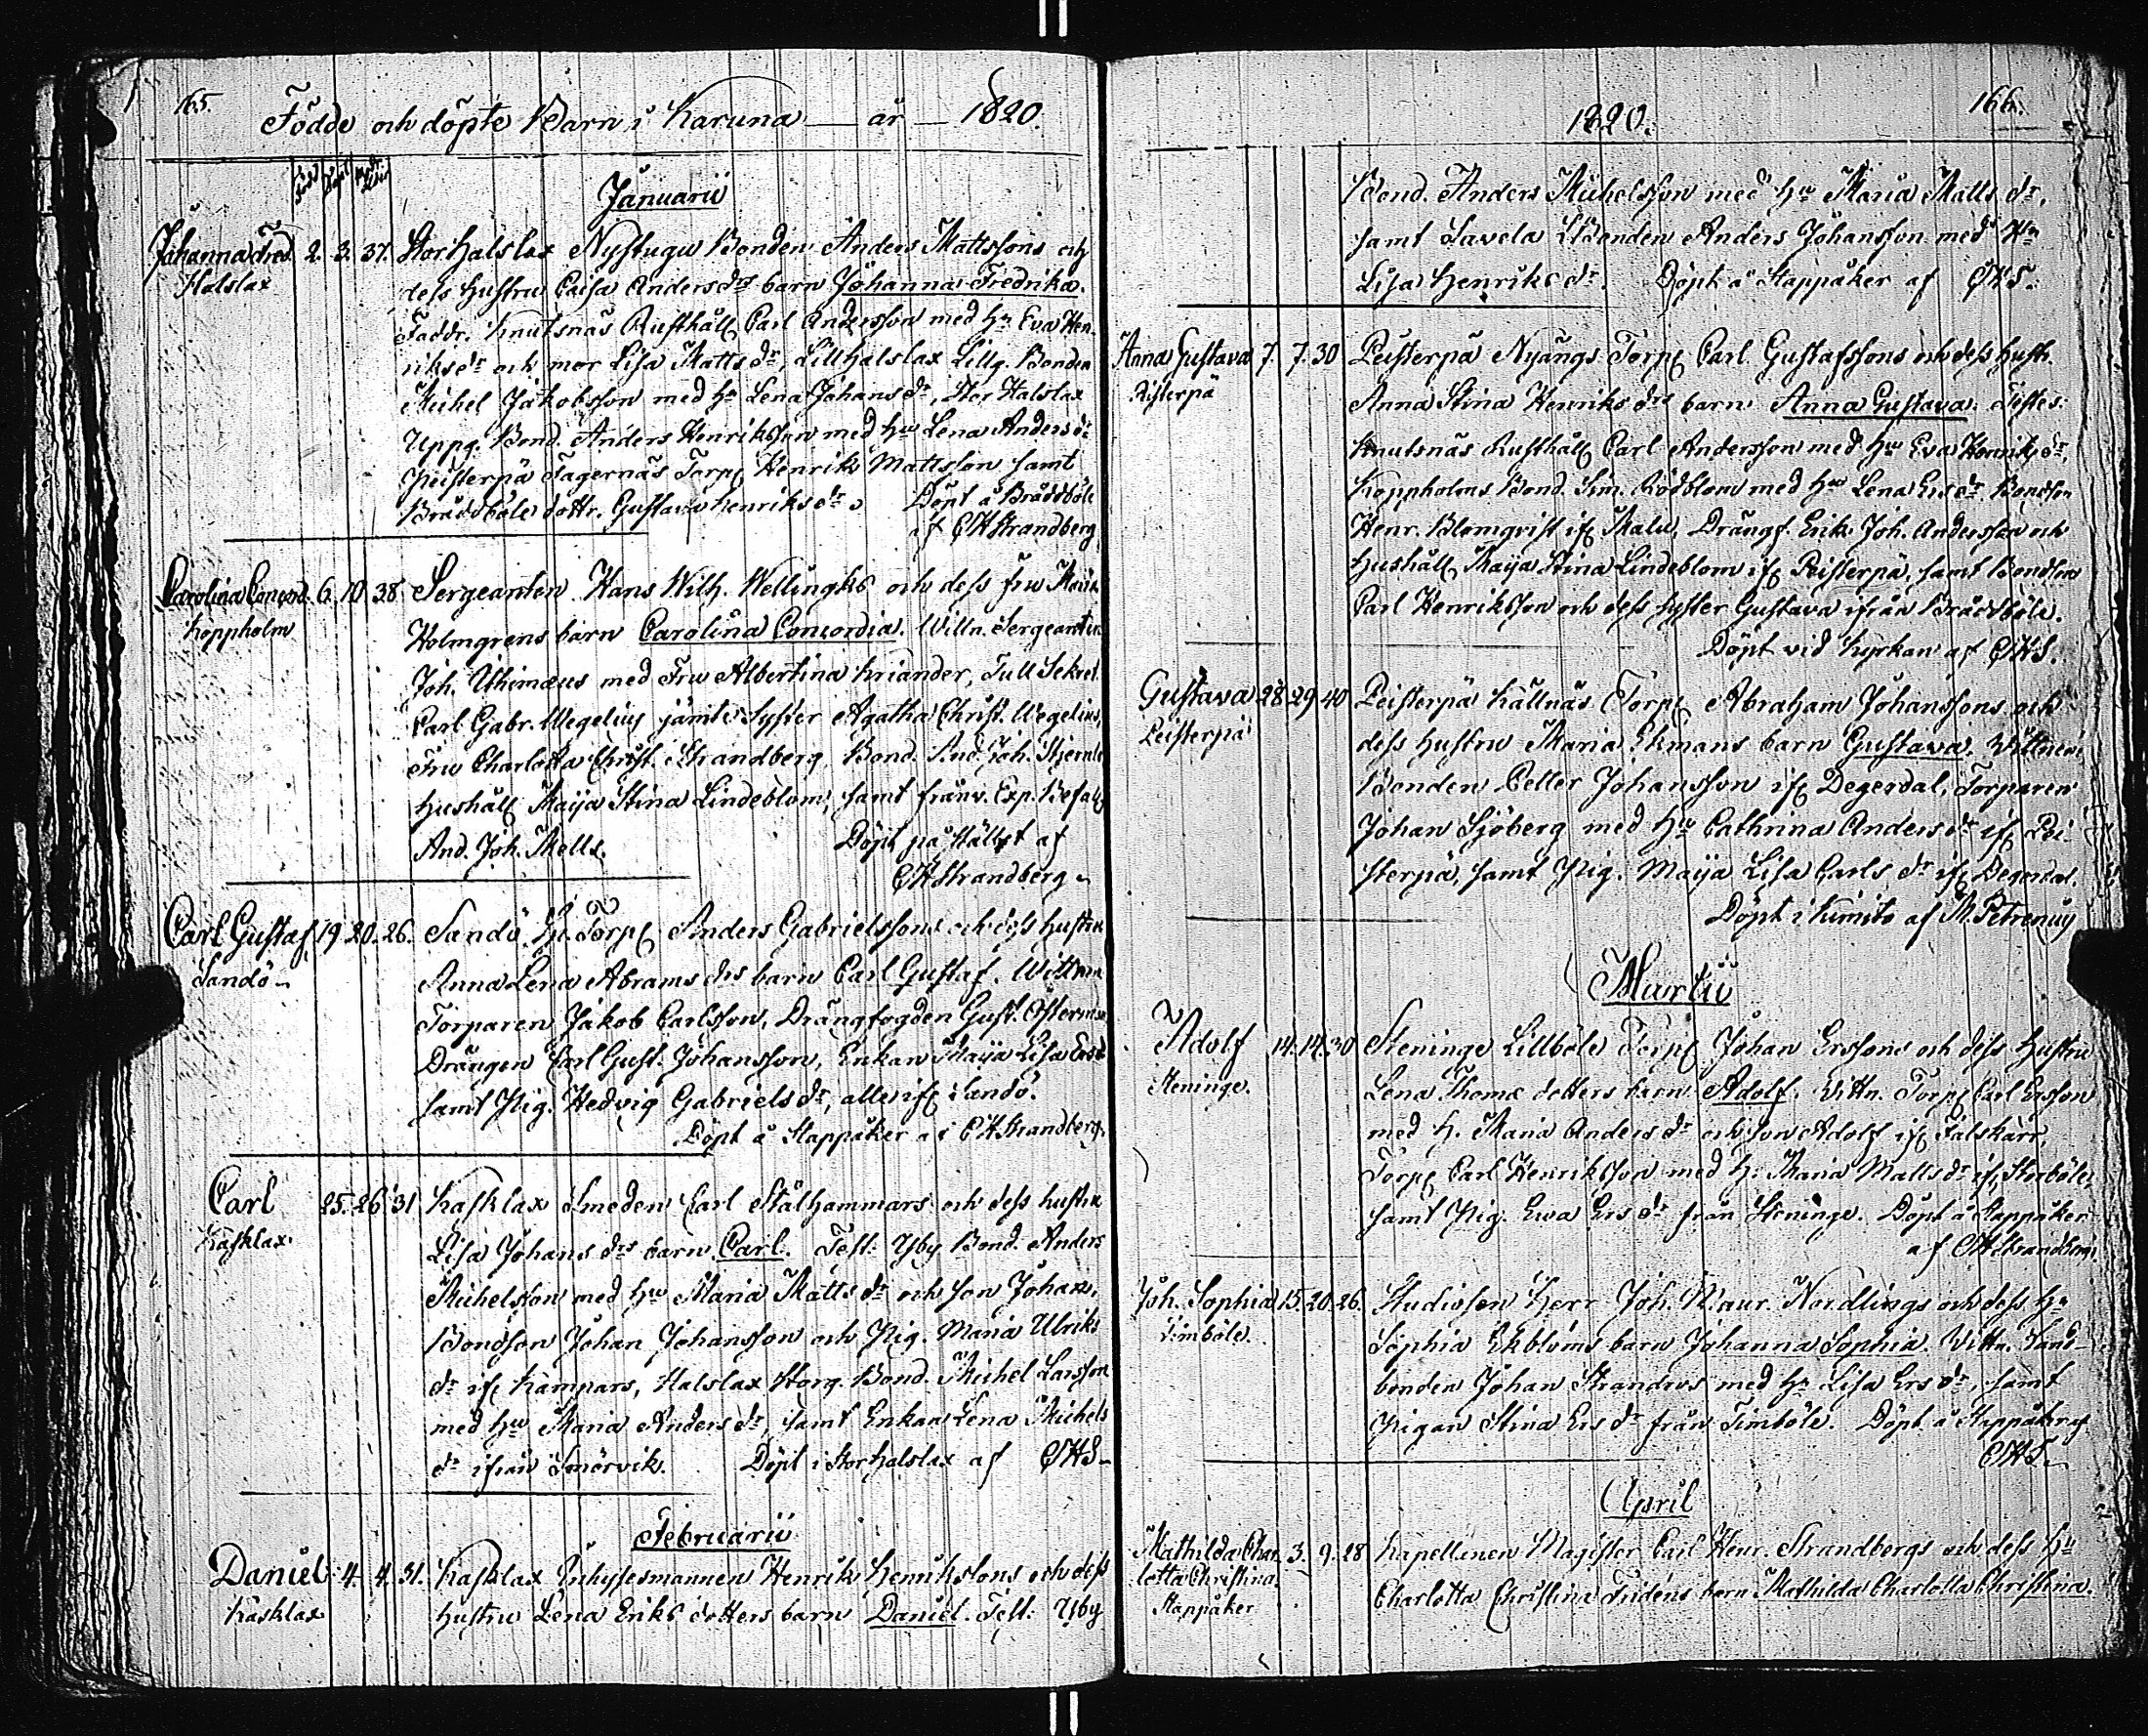 165. Födde och döpte Barn i Karuna — år — 1820.
Född Döpt Modr. ålder
Januarii
Johanna Fred. 2. 3. 37. Storhalslax Nystugu Bonden Anders Mattssons och
Halslax dess hustru Caisa Anders drs barn Johanna Fredrika.
Faddr. Knutsnäs Rusthåll Carl Andersson med Hu Eva Hen-
riks dr och mor Lisa Matts dr, Lillhalslax Lillg. Bonden
Michel Jakobsson med Hu Lena Johans dr, Stor Halslax
Uppg. Bond. Anders Henriksson med Hu Lena Anders dr
Peisterpä Fagernäs Torp. Henrik Mattsson samt
Bråddböle dottr. Gustava Henriks dr. Döpt å Bråddböle
af CHStrandberg
Carolina Concord. 6. 10. 38. Sergeanten Hans Wilh. Wellingks och dess fru Maria
Koppholm Holmgrens barn Carolina Concordia. Willn. Sergeanten
Joh. Uthimæus med Fru Albertina Kriander, Tull Sekret.
Carl Gabr. Wegelius jämte Syster Agatha Christ. Wegelius,
Fru Charlotta Christ. Strandberg, Bond. And. Joh.
Hushåll Maija Stina Lindeblom, samt frånv. Exp. Befall
And. Joh. Mells. Döpt på stället af
CHStrandberg
Carl Gustaf 19. 20. 26. Sandö Torp. Anders Gabrielssons och dess hustru
Sandö Anna Lena Abrams drs barn Carl Gustaf. Wittnen
Torparen Jakob Carlsson, Drängfogden Gust. Österman
Drängen Carl Gust. Johansson, Enkan Maija Lisa Ers dr
samt Pig. Hedvig Gabriels dr, alle if. Sandö.
Döpt å Stappåker af CHStrandberg.
Carl 25. 26. 31 Kasklax Smeden Carl Stålhammars och dess hustru
Kasklax. Lisa Johans drs barn Carl. Test: Yby Bond. Anders
Michelsson med Hu Maria Matts dr och son Johan,
Bondson Johan Johansson och Pig. Maria Ulriks
dr if. Kämpars, Halslax Storg. Bond. Michel Larsson
med Hu Maria Anders dr, samt Enkan Lena Michels
dr ifrån Smörvik. Döpt i Storhalslax af CHS
Februarii
Daniel 4. 4. 31. Kasklax Inhysesmannen Henrik Henrikssons och dess
Kasklax hustru Lena Eriks dotters barn Daniel. Test: Yby
1820. 166.
Bond. Anders Michelsson med Hu Maria Matts dr,
samt Lavela Bonden Anders Johansson med Hu
Lisa Henriks dr. Döpt å Stappåker af CHS.
Anna Gustava 7. 7. 30 Peisterpä Nyängs Torp. Carl Gustafssons och dess hustr.
Peisterpä Anna Stina Henriks drs barn Anna Gustava. Testes:
Knutsnäs Rusthåll Carl Andersson med Hu Eva Henriks dr,
Koppholms Bond. Sim. Rödblom med Hu Lena Ers dr Bondson
Henr. Blomqvist if. Malu, Drängf. Erik Joh. Andersson och
Hushåll Maija Stina Lindeblom if. Peisterpä, samt Bondson
Carl Henriksson och dess syster Gustava ifrån Bråddböle.
Döpt vid Kyrkan af CHS.
Gustava 28. 29. 40 Peisterpä Källnäs Torp. Abraham Johanssons och
Peisterpä dess hustru Maria Ekmans barn Gustava. Wittnen
Bonden Petter Johansson if. Degerdal, Torparen
Johan Sjöberg med Hu Cathrina Anders dr if. Pei-
sterpä, samt Pig. Maija Lisa Carls dr if. Degerdal.
Döpt i Kimito af M. Petrenius
Martii
Adolf 14. 14. 30 Steninge Lillböle Torp. Johan Erssons och dess Hustru
Steninge. Lena Thomæ dotters barn Adolf. Vittn. Torp. Carl Ersson
med H. Maria Anders dr och son Adolf if. Falskärr,
Torp. Carl Henriksson med H. Maria Matts dr if. Storböle,
samt Pig. Ewa Ers dr från Steninge. Döpt å Stappåker
af CHStrandberg
Joh. Sophia 15. 20. 26. Studiosen Herr Joh. Maur. Nordlings och dess Hu
Timböle. Sophia Ekbloms barn Johanna Sophia. Vittn. Land-
bonden Johan Strandros med Hu Lisa Ers dr, samt
Pigan Stina Ers dr från Timböle. Döpt å Stappåker af
CHS.
April
Mathilda Char- 3. 9. 28 Kapellanen Magister Carl Henr. Strandbergs och dess Hu
lotta Christina Charlotta Christina Fridens barn Mathilda Charlotta Christina.
Stappåker